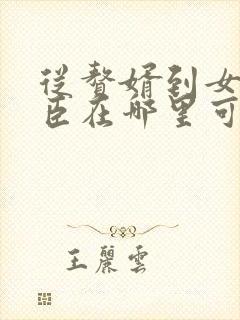 從贅婿到女
臣在哪里可
王麗雲